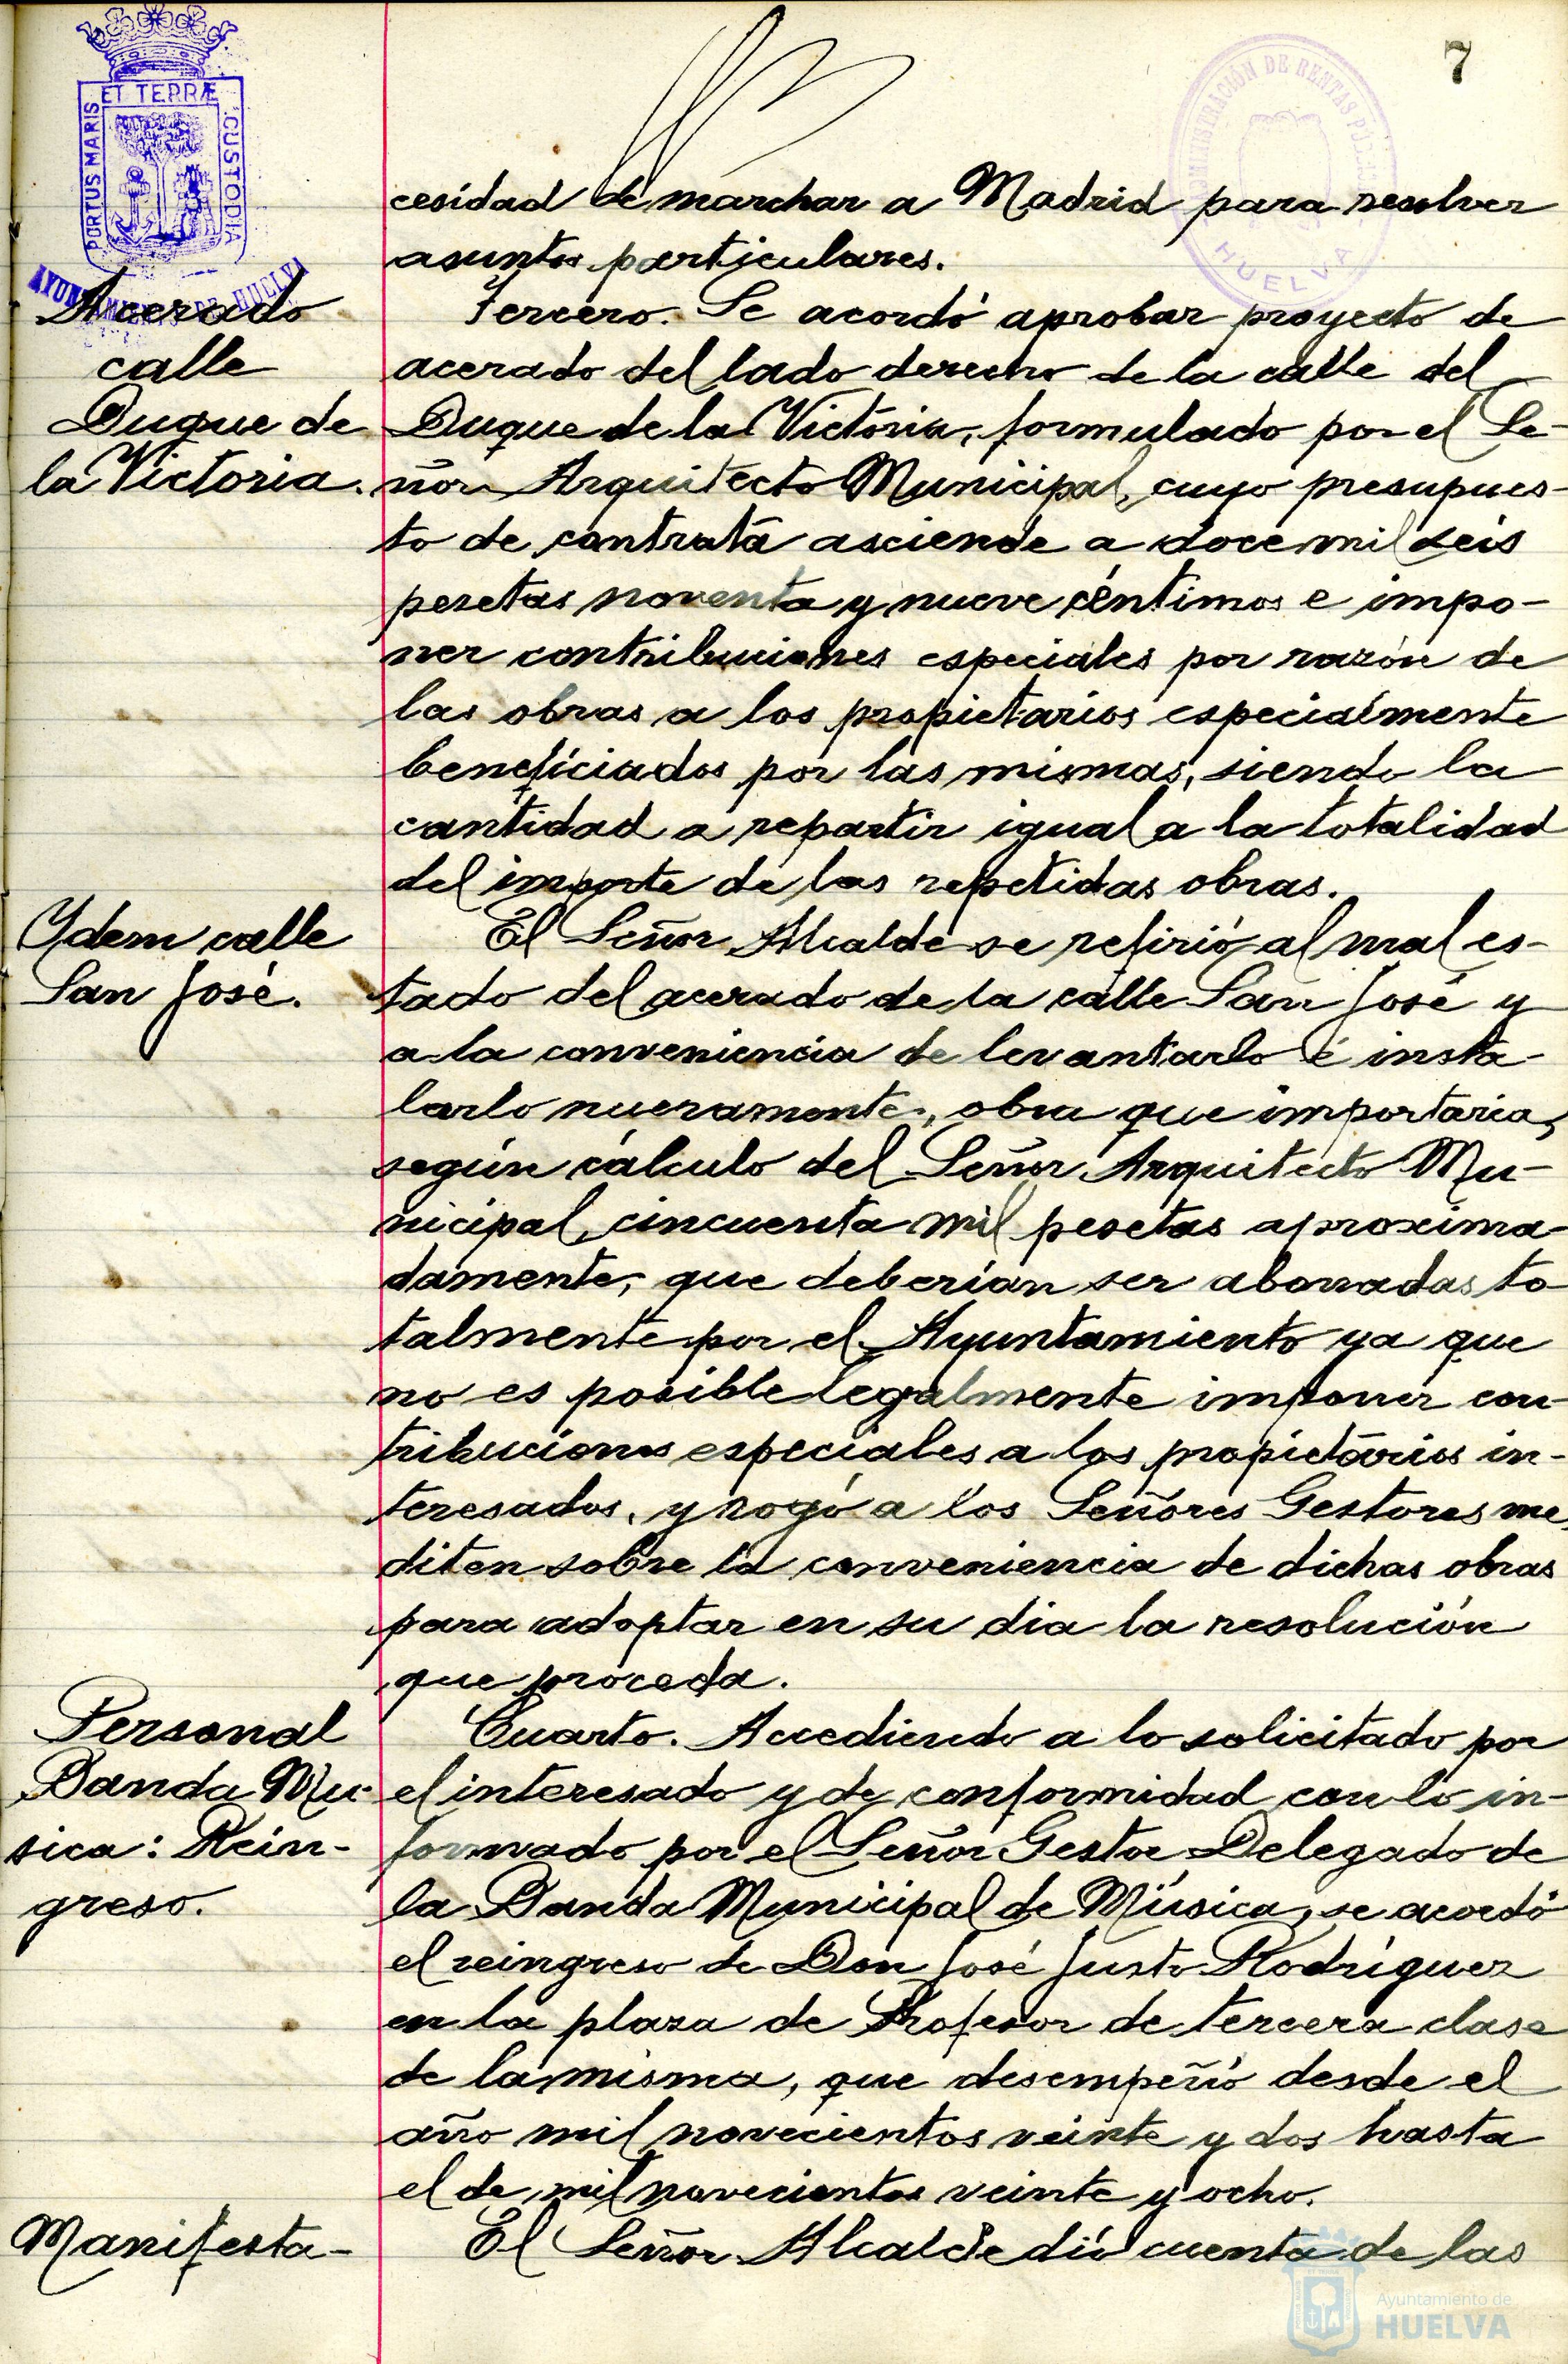 7
PORTUS MARIS
ET TERRÆ
CUSTODIA
AYUNTAMIENTO DE HUELVA
ADMINISTRACIÓN DE RENTAS
HUELVA
cesidad de marchar a Madrid para resolver
asuntos particulares.
Acerado
calle
Duque de
la Victoria.
Tercero. Se acordó aprobar proyecto de
acerado del lado derecho de la calle del
Duque de la Victoria, formulado por el Se-
ñor Arquitecto Municipal, cuyo presupues-
to de contrata asciende a doce mil seis
pesetas noventa y nueve céntimos e impo-
ner contribuciones especiales por razón de
las obras a los propietarios especialmente
beneficiados por las mismas, siendo la
cantidad a repartir igual a la totalidad
del importe de las repetidas obras.
Ydem calle
San José.
El Señor Alcalde se refirió al mal es-
tado del acerado de la calle San José y
a la conveniencia de levantarlo é insta-
larlo nuevamente, obra que importaria,
según cálculo del Señor Arquitecto Mu-
nicipal, cincuenta mil pesetas aproxima-
damente, que deberian ser abonadas to-
talmente por el Ayuntamiento ya que
no es posible legalmente imponer con-
tribuciones especiales a los propietarios in-
teresados, y rogó a los Señores Gestores me-
diten sobre la conveniencia de dichas obras
para adoptar en su dia la resolución
que proceda.
Personal
Banda Mú-
sica: Rein-
greso.
Cuarto. Accediendo a lo solicitado por
el interesado y de conformidad con lo in-
formado por el Señor Gestor Delegado de
la Banda Municipal de Música, se acordó
el reingreso de Don José Justo Rodríguez
en la plaza de Profesor de tercera clase
de la misma, que desempeñó desde el
año mil novecientos veinte y dos hasta
el de mil novecientos veinte y ocho.
Manifesta-
El Señor Alcalde dió cuenta de las
Ayuntamiento de
HUELVA